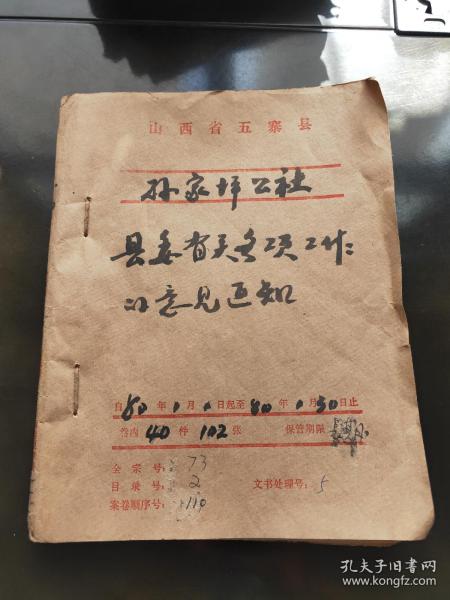 山西省五寨县
孙家坪公社
县委有关各项工作
的意见通知
自80年1月1日起至80年1月30日止
卷内40件102张 保管期限
全宗号:73
目录号:2 文书处理号:5
案卷顺序号:
孔夫子旧书网
www.kongfz.com